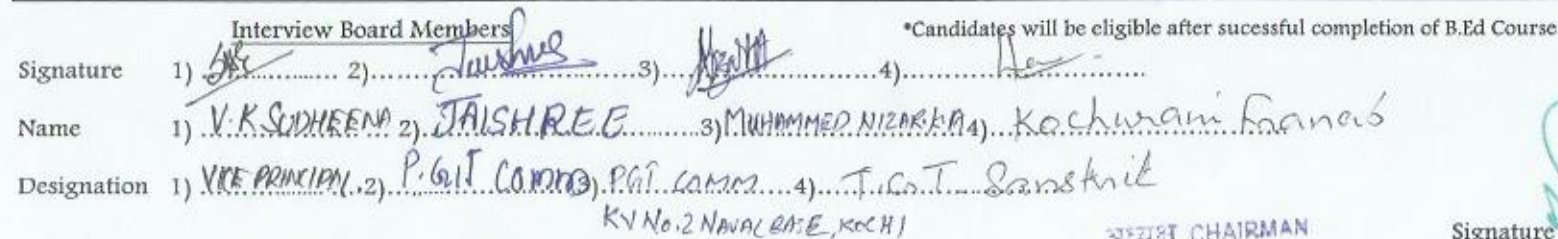 Interview Board Members *Candidates will be eligible after sucessful completion of B.Ed Course
Signature 1) 2) Jaishree 3) 4)
Name 1) V.K SUDHEENA 2) JAISHREE 3) MUHAMMED NIZAR K.A 4) Kochurani Francis
Designation 1) VICE PRINCIPAL 2) P.GIT COMM 3) PGT COMM 4) T.G.T Sanskrit
KV No.2 NAVAL BASE, KOCHI
CHAIRMAN Signature